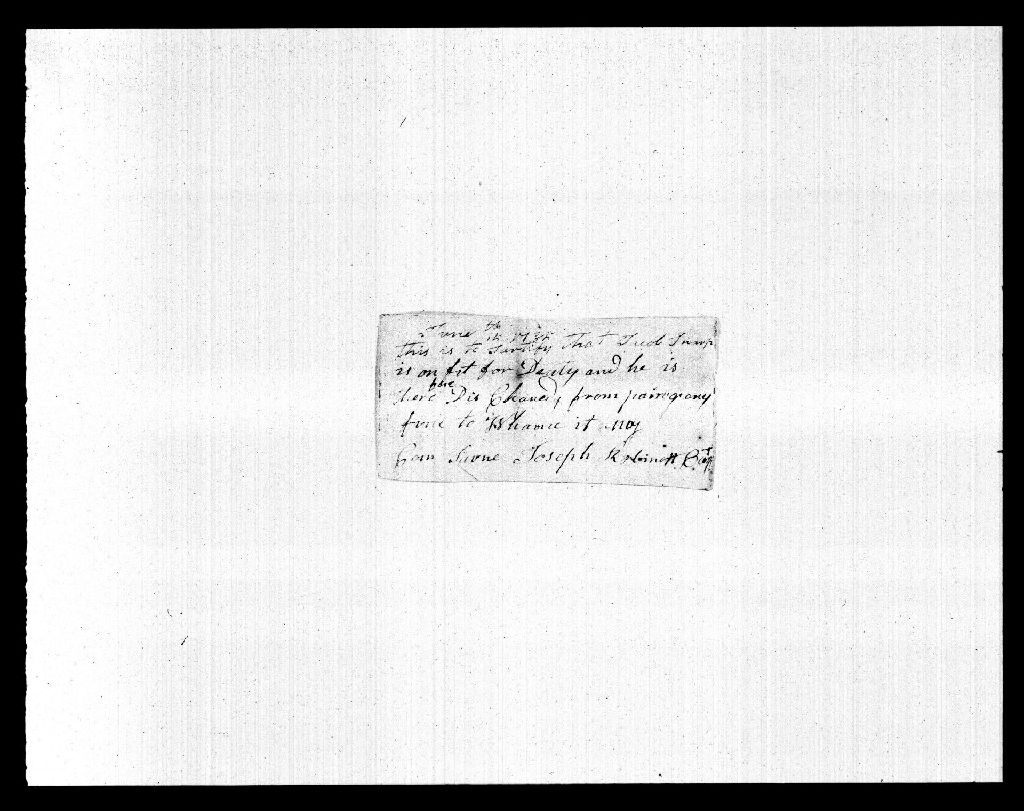 June th
this is to Sartify that Fred
is on fit for Deuty and he is
here
there Dis Chaned, from pairing any
fine to Whamie it may
Com Sarne Joseph Robinett Capt